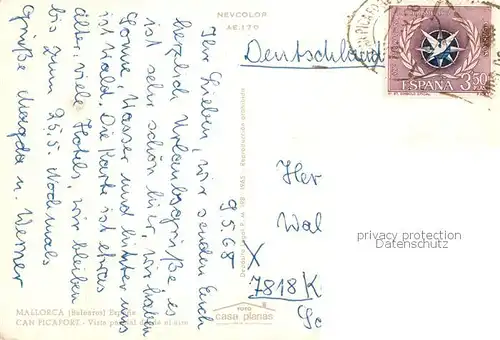 NEVCOLOR
AE.170
Deutschland
CAN PICAFORT
ESPAÑA
3,50
PTA
9.5.68
Ihr Lieben, wir senden Euch
herzlich Urlaubsgrüße es
ist sehr schön hier, wir haben
Sonne, Wasser und hinter uns
ist Wald. Die Karte ist etwas
älter, viele Hotels, wir bleiben
bis zum 25.5. Nochmals
Grüße Magda u. Werner
Reproducción prohibida
Her
Wal
X
7818 K
privacy protection
Datenschutz
MALLORCA (Baleares) España
CAN PICAFORT. - Vista parcial desde el aire
FOTO
casa planas